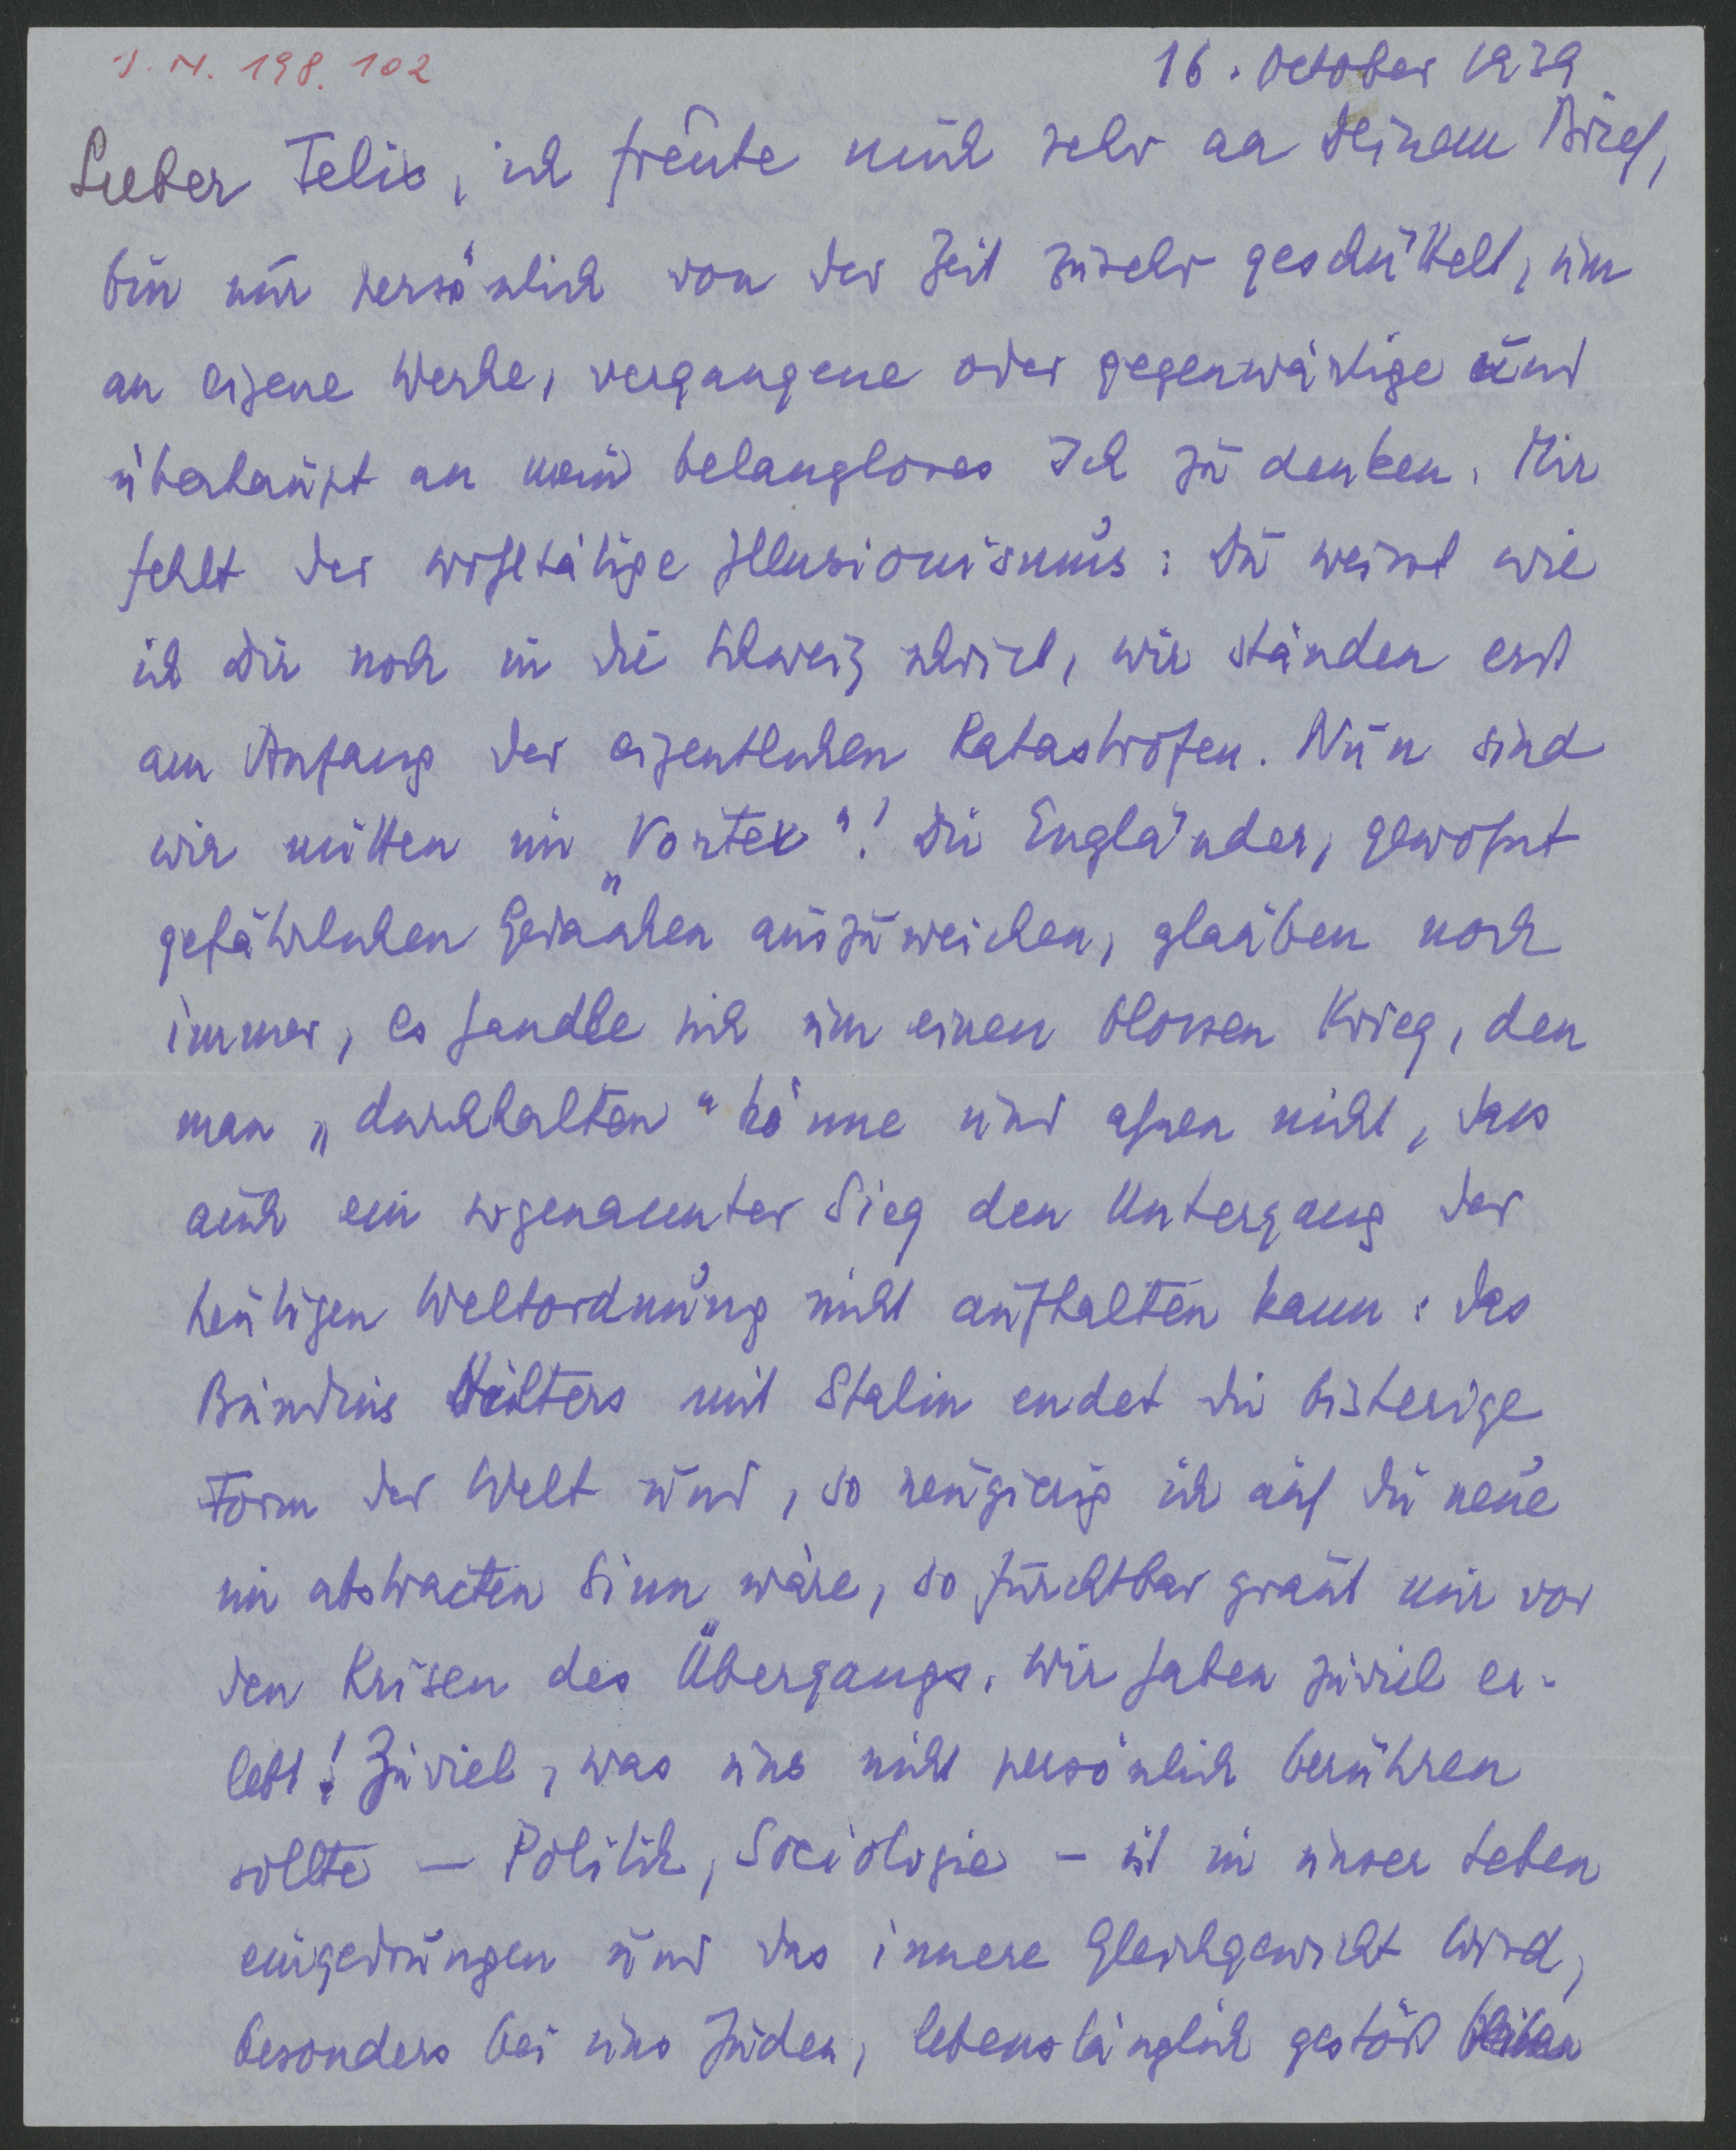 I. N. 198.102
16. October 1939
Lieber Felix, ich freute mich sehr an Deinem Brief,
bin nur persönlich von der Zeit zusehr geschüttelt, um
an eigene Werke, vergangene oder gegenwärtige und
überhaupt an mein belangloses Ich zu denken. Mir
fehlt der wohltätige Illusionismus: Du weisst wie
ich Dir noch in die Schweiz schrieb, wir ständen erst
am Anfang der eigentlichen Katastrofen. Nun sind
wir mitten im „Vortex"! Die Engländer, gewohnt
gefährlichen Gedanken auszuweichen, glauben noch
immer, es handle sich um einen blossen Krieg, den
man „durchhalten" könne und ahnen nicht, dass
auch ein sogenannter Sieg den Untergang der
heutigen Weltordnung nicht aufhalten kann: das
Bündnis Hitlers mit Stalin endet die bisherige
Form der Welt und, so neugierig ich auf die neue
im abstracten Sinn wäre, so furchtbar graut mir vor
den Krisen des Übergangs. Wir haben zuviel er-
lebt! Zuviel, was uns nicht persönlich berühren
sollte – Politik, Sociologie – ist in unser Leben
eingedrungen und das innere Gleichgewicht wird,
besonders bei uns Juden, lebenslänglich gestört bleiben